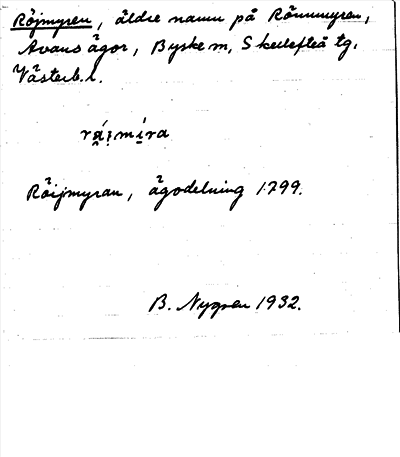 Röjmyren, äldre namn på Rönnmyren,
Avans ägor, Byske sn, Skellefteå tg,
Västerb. l.
Röijmyran, ägodelning 1799.
B. Nygren 1932.